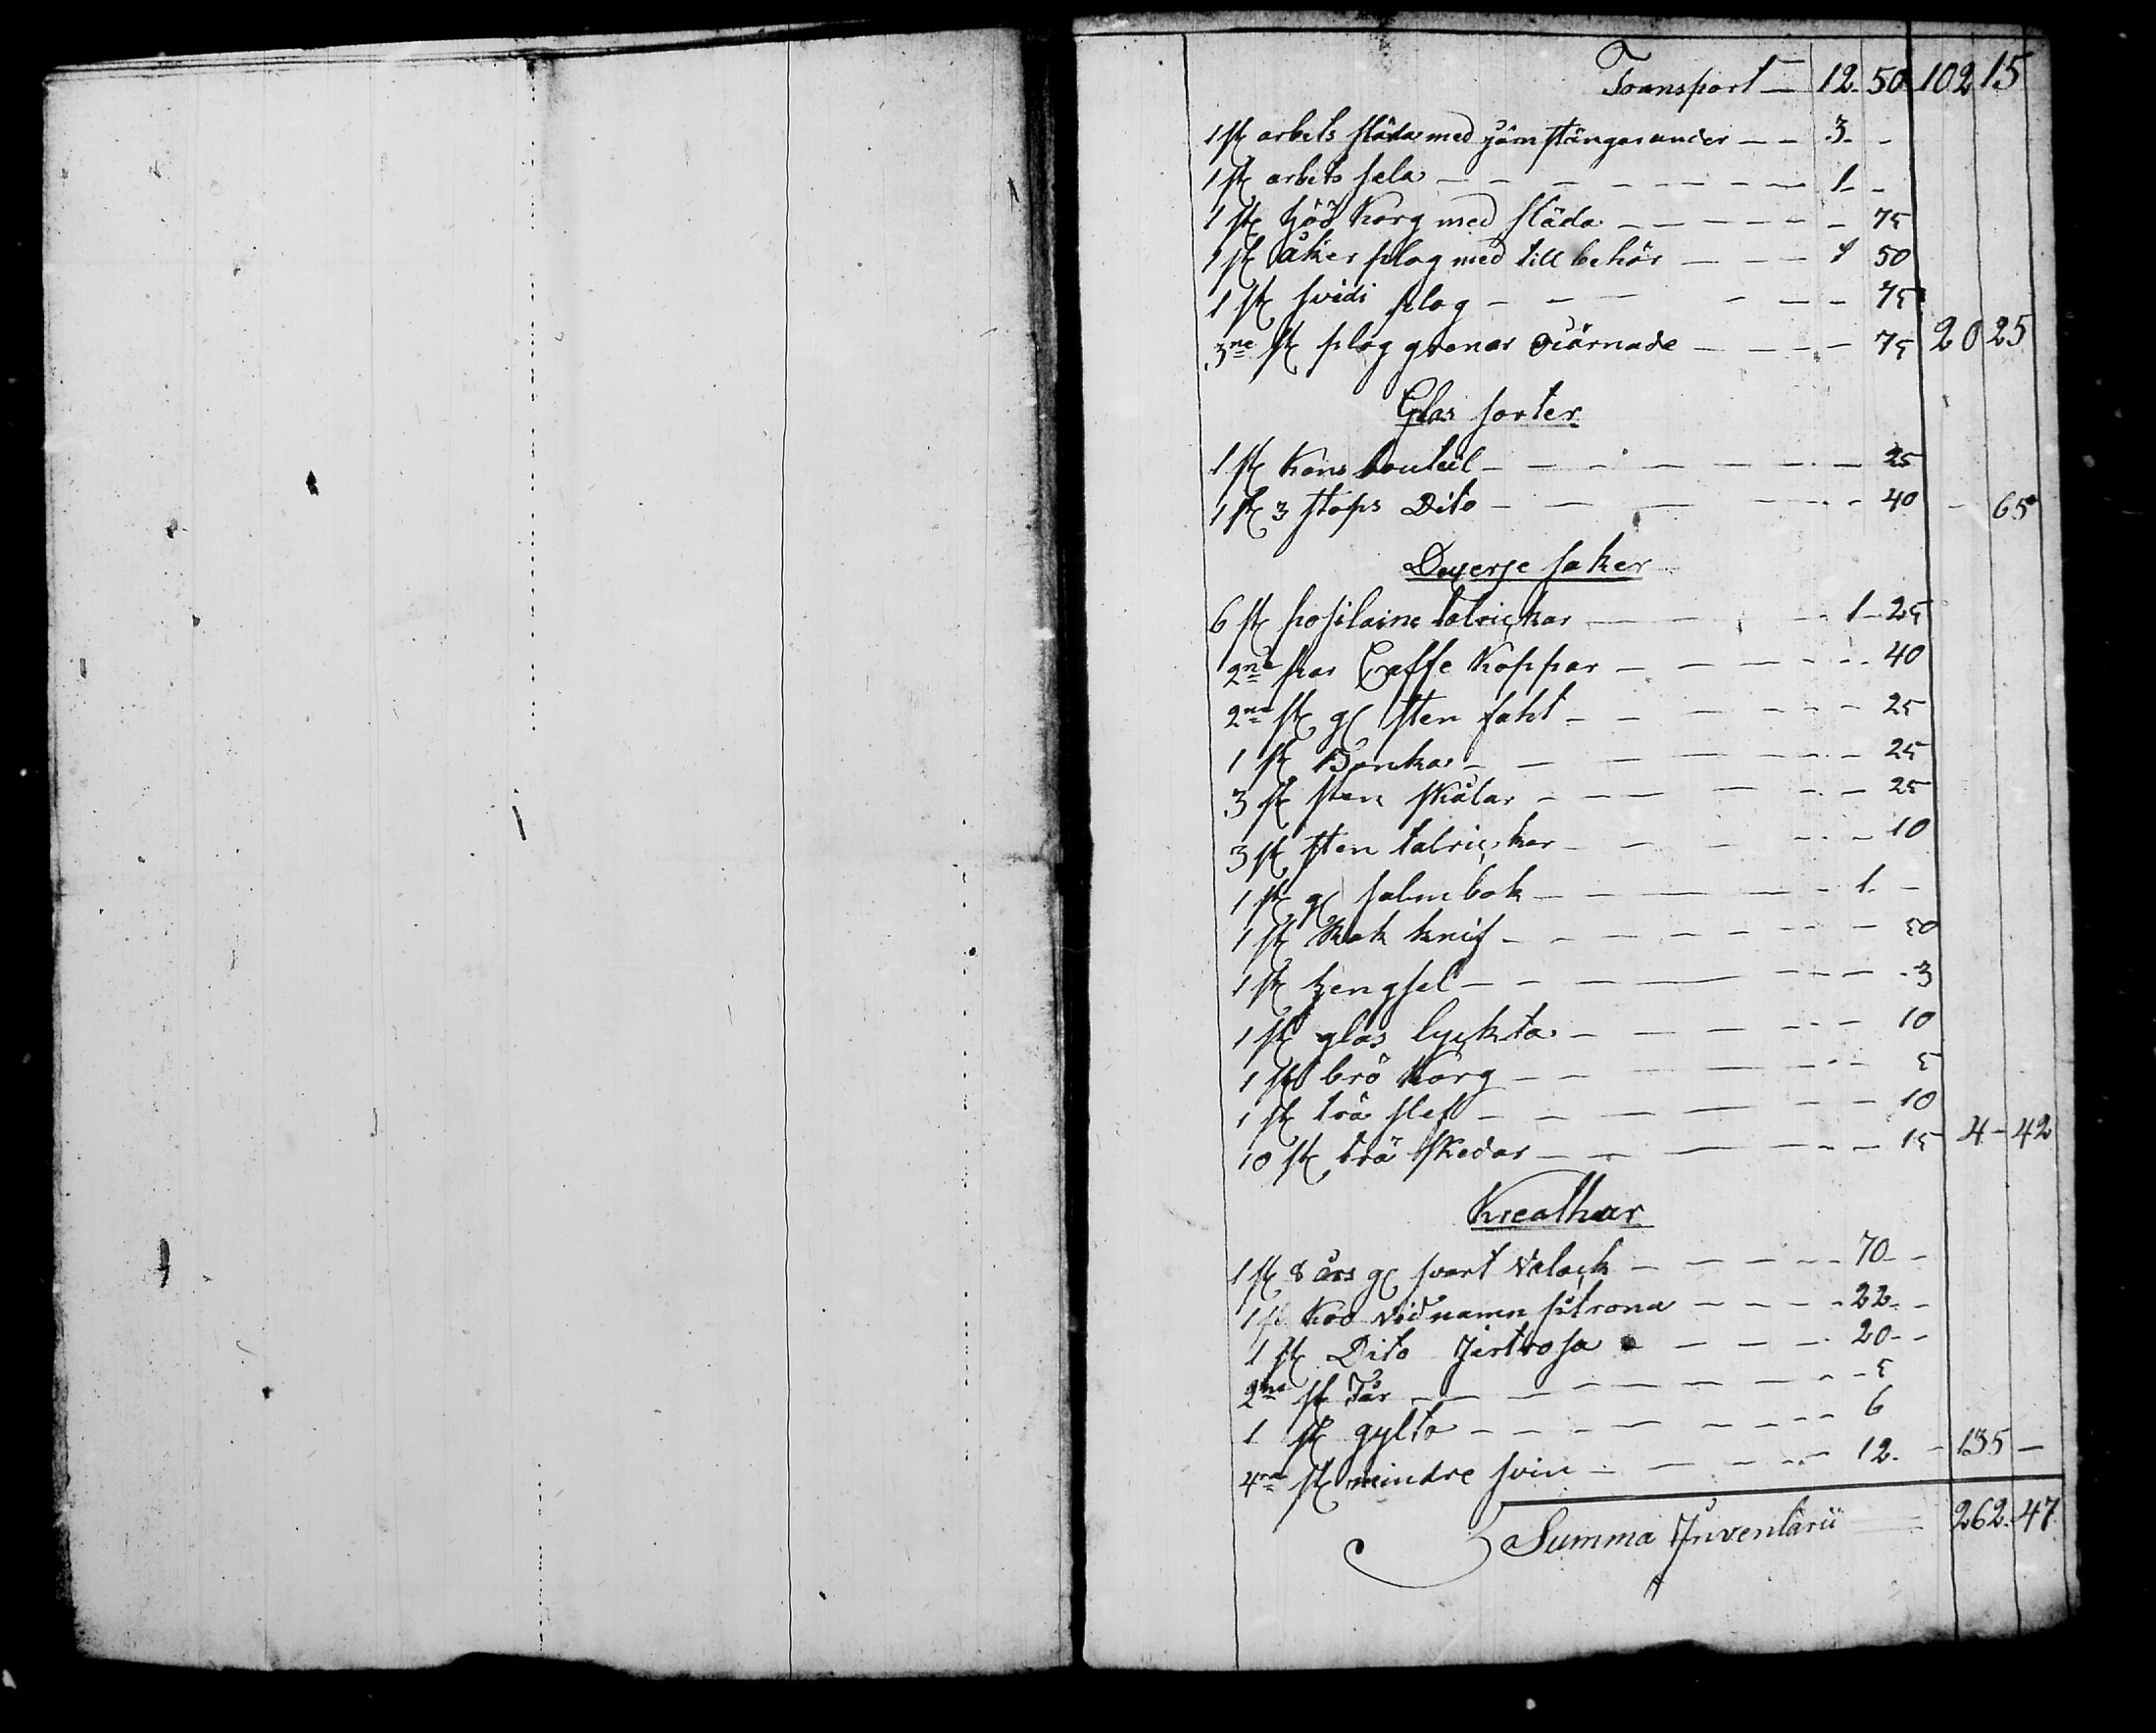 Transport — 12. 50 102 15
1 st arbets släda med järnstänger under — — 3 - -
1 st arbets sela — — — — — — — 1 - -
1 st höö Korg med släda — — — — — 75
1 st åker plog med till behör — — — 1 50
1 st svidi plog — — — — — — 75
3ne st plog grenar oiärnade — — — — 75 20 25
Glas sorter
1 st Kans bouteil — — — — — — 25
1 st 3 stops Dito — — — — — 40 - 65
Deverse saker
6 st posilaine talrickar — — — — 1 - 25
2ne par Caffe Koppar — — — — — 40
2ne st gl sten faht — — — — — 25
1 st Bonkar — — — — — 25
3 st sten skålar — — — — — 25
3 st sten talrickar — — — — — 10
1 st gl salmbok — — — — — 1. -
1 st Rak knif — — — — — — 50
1 st hengsel — — — — — — 3
1 st glas lyckta — — — — — 10
1 st brö Korg — — — — — 5
1 st trä slef — — — — — 10
10 st trä skedar — — — — — 15 4 - 42
Kreathur
1 st 8 års gl svart Valack — — — — 70 - -
1 st Koo vid namn sitrona — — — 22. -
1 st Dito Jertrosa — — — — 20 - -
2ne st Får — — — — — — 5
1 st gylta — — — — — — 6
4ra st mindre svin — — — — 12. - 135 —
Summa Inventarii 262. 47.